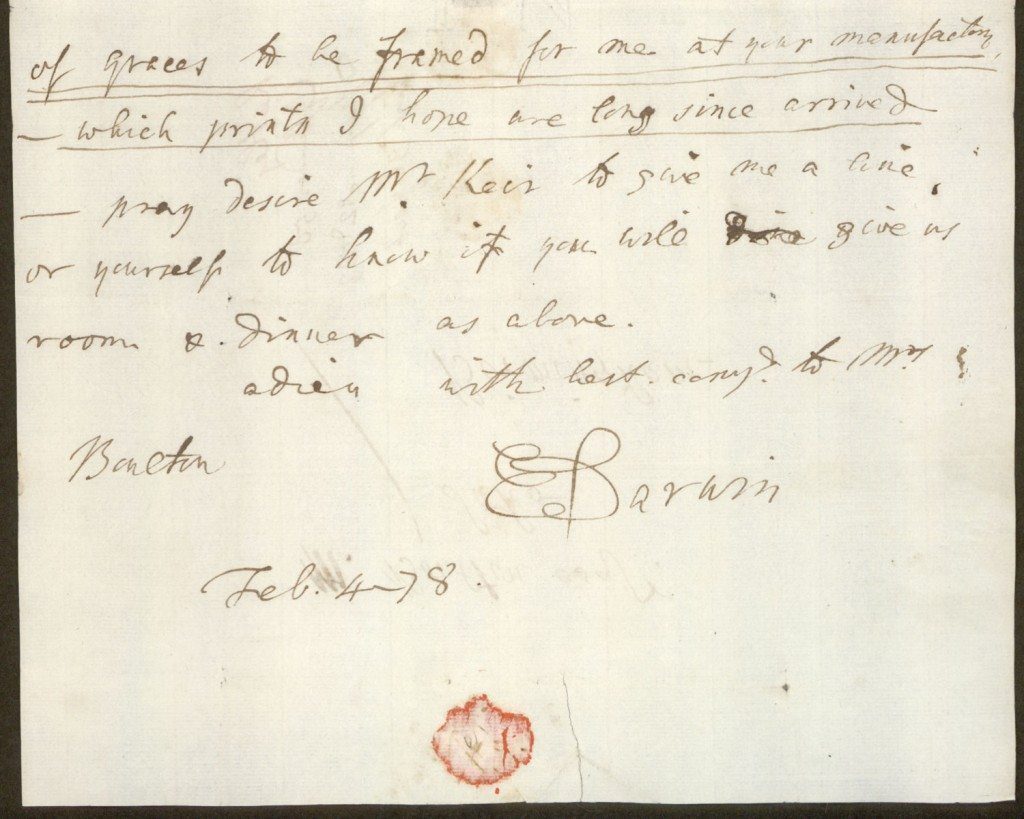 of graces to be framed for me at your manufactory,
— which prints I hope are long since arrived
— pray desire Mr Keir to give me a line,
or yourself to know if you will give us
room & dinner as above.
adieu with best comp.s to Mrs
Boulton
E Darwin
Feb. 4 - 78.